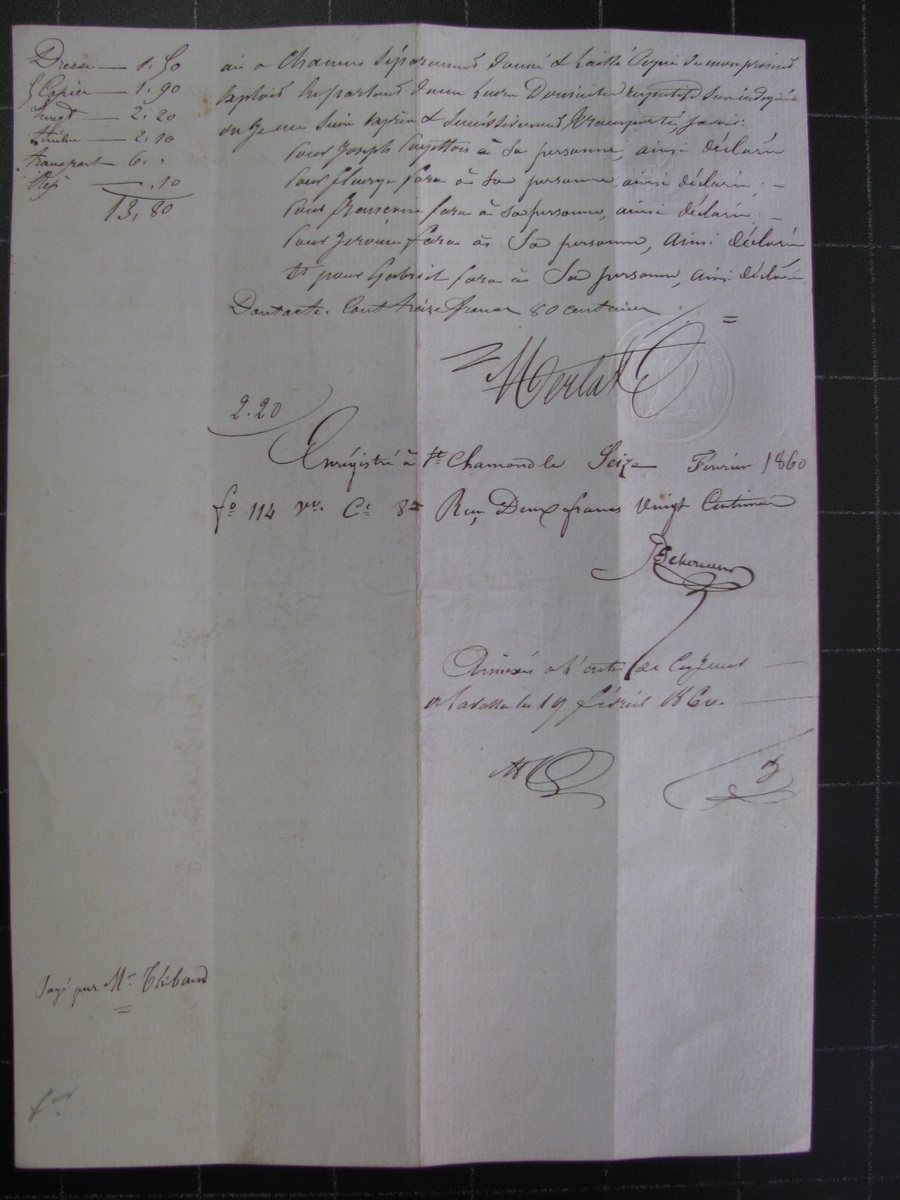 Dresse — 1. 50
5 Copies — 1. 90
Enregt — 2. 20
2. 10
transport — 6. "
Rép — . 10
13, 80
ai a Chacun séparément donné & laissé Copie du mon présent
exploit en parlant dans leurs Domiciles respectifs sus indiqués
où je me suis exprès & successivement transporté, savoir:
Pour Joseph à sa personne, ainsi déclaré
Pour fleurye fara à sa personne, ainsi déclaré; —
Pour françoise fara à sa personne, ainsi déclaré; —
Pour Jérome fara à Sa personne, ainsi déclaré
Et pour Gabriel fara à Sa personne, ainsi déclaré
Dont acte. Cout treize francs 80 centimes
Mertat
2.20
Enregistré à St. Chamond le Seize Février 1860
fo 114 vo. Ce 8 Reçu Deux francs Vingt Centimes
Annexée à l'acte de
le 19 février 1860.
Payé par Mr Thibaud